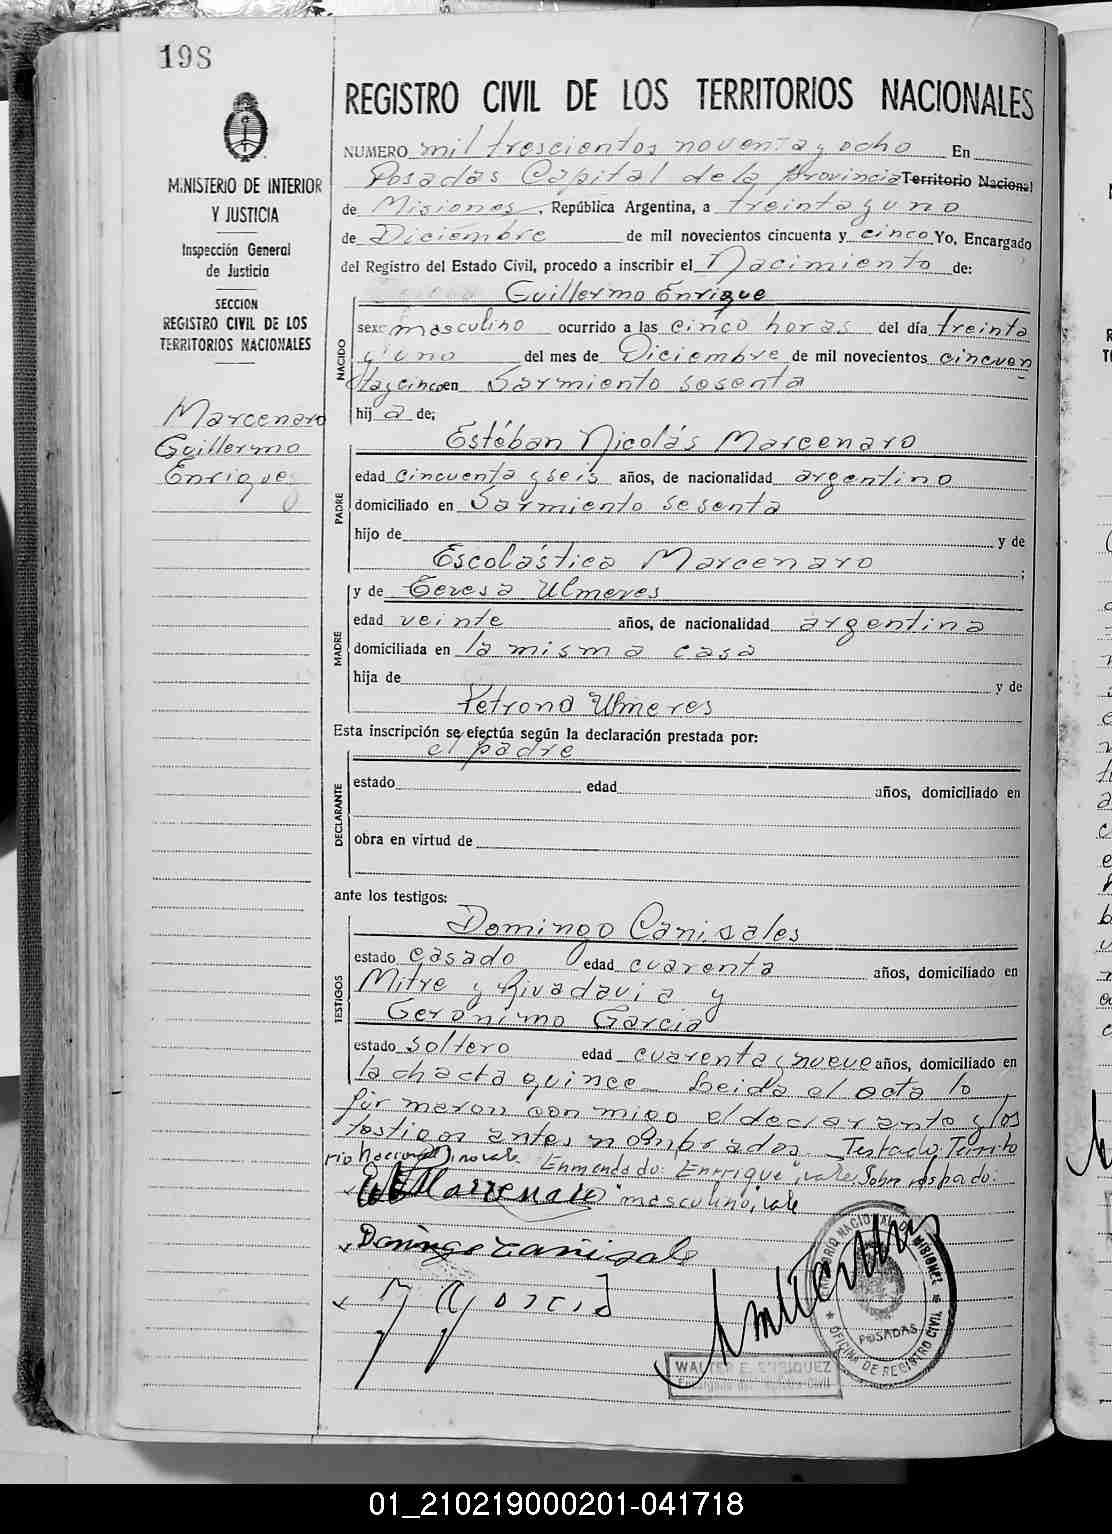 198
MINISTERIO DE INTERIOR
Y JUSTICIA
Inspección General
de Justicia
SECCION
REGISTRO CIVIL DE LOS
TERRITORIOS NACIONALES
Marcenaro
Guillermo
Enrique
REGISTRO CIVIL DE LOS TERRITORIOS NACIONALES
NUMERO mil trescientos noventa y ocho En
Posadas Capital de la provincia Territorio Nacional
de Misiones, República Argentina, a treinta y uno
de Diciembre de mil novecientos cincuenta y cinco Yo, Encargado
del Registro del Estado Civil, procedo a inscribir el Nacimiento de:
Guillermo Enrique
NACIDO
sexo masculino ocurrido a las cinco horas del día treinta
y uno del mes de Diciembre de mil novecientos cincuen
ta y cinco en Sarmiento sesenta
hij a de:
Estéban Nicolás Marcenaro
PADRE
edad cincuenta y seis años, de nacionalidad argentino
domiciliado en Sarmiento sesenta
hijo de y de
Escolástica Marcenaro ;
y de Teresa Ulmeres
MADRE
edad veinte años, de nacionalidad argentina
domiciliada en la misma casa
hija de y de
Petrona Ulmeres
Esta inscripción se efectúa según la declaración prestada por:
el padre
DECLARANTE
estado edad años, domiciliado en
obra en virtud de
ante los testigos:
Domingo Canisales
TESTIGOS
estado casado edad cuarenta años, domiciliado en
Mitre y Rivadavia y
Gerónimo Garcia
estado soltero edad cuarenta y nueve años, domiciliado en
la chacra quince Leida el acta lo
firmaron con migo el declarante y los
testigos antes nombrados. Testado: Territo
rio Nacional, no vale. Enmendado: Enrrique, vale, Sobre raspado:
masculino, vale
Domingo Cañisale
Garcia
TERRITORIO NACIONAL DE MISIONES
POSADAS
OFICINA DE REGISTRO CIVIL
WALTER E. ENRIQUEZ
Encargado del Registro Civil
01_210219000201-041718